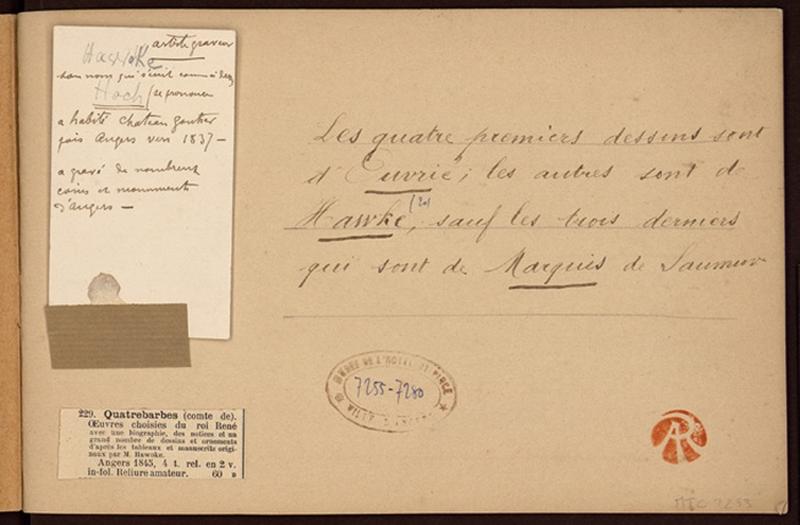 artiste graveur
Hawke
son nom qui s'écrit comme
Hoch (se prononce
a habité chateau gontier
puis Angers vers 1837 —
a gravé de nombreux
coins et monuments
d'Angers —
Les quatre premiers dessins sont
d'Ouvrié; les autres sont de
Hawke, (20) sauf les trois derniers
qui sont de Marquis de Saumur
7255-7280
229. Quatrebarbes (comte de).
Œuvres choisies du roi René
avec une biographie, des notices et un
grand nombre de dessins et ornements
d'après les tableaux et manuscrits origi-
naux par M. Hawoke.
Angers 1845, 4 t. rel. en 2 v.
in-fol. Reliure amateur. 60 »
AR
MTC 7253